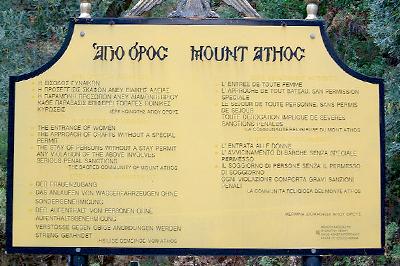 ΆΓΙΟ ΌΡΟΣ MOUNT ATHOS
Η ΕΙΣΟΔΟΣ ΓΥΝΑΙΚΩΝ
Η ΠΡΟΣΕΓΓΙΣΙΣ ΣΚΑΦΩΝ ΑΝΕΥ ΕΙΔΙΚΗΣ ΑΔΕΙΑΣ
Η ΠΑΡΑΜΟΝΗ ΠΡΟΣΩΠΩΝ ΑΝΕΥ ΔΙΑΜΟΝΗΤΗΡΙΟΥ
ΚΑΘΕ ΠΑΡΑΒΑΣΙΣ ΕΠΙΦΕΡΕΙ ΠΟΙΝΙΚΕΣ
ΚΥΡΩΣΕΙΣ
ΙΕΡΑ ΚΟΙΝΟΤΗΣ ΑΓΙΟΥ ΟΡΟΥΣ
THE ENTRANCE OF WOMEN
THE APPROACH OF CRAFTS WITHOUT A SPECIAL
PERMIT
THE STAY OF PERSONS WITHOUT A STAY PERMIT
ANY VIOLATION OF THE ABOVE INVOLVES
SERIOUS PENAL SANCTIONS
THE SACRED COMMUNITY OF MOUNT ATHOS
DER FRAUENZUGANG
DAS ANLAUFEN VON WASSERFAHRZEUGEN OHNE
SONDERGENEHMIGUNG
DER AUFENTHALT VON PERSONEN OHNE
AUFENTHALTSGENEHMIGUNG
VERSTÖSSE GEGEN OBIGE ANORDNUNGEN WERDEN
STRENG GEAHNDET
HEILIGE GEMEINDE VON ATHOS
L'ENTREE DE TOUTE FEMME
L'APPROCHE DE TOUT BATEAU, SAN PERMISSION
SPECIALE
LE SEJOUR DE TOUTE PERSONNE, SANS PERMIS
DE SEJOUR
TOUTE DEROGATION IMPLIQUE DE SEVERES
SANCTIONS PENALES
LA COMMUNAUTE RELIGIEUSE DU MONT ATHOS
L'ENTRATA ALLE DONNE
L'AVVICINAMENTO DI BARCHE SENZA SPECIALE
PERMESSO
IL SOGGIORNO DI PERSONE SENZA IL PERMESSO
DI SOGGIORNO
OGNI VIOLAZIONE COMPORTA GRAVI SANZIONI
PENALI
LA COMUNITA RELIGIOSA DEL MONTE ATHOS